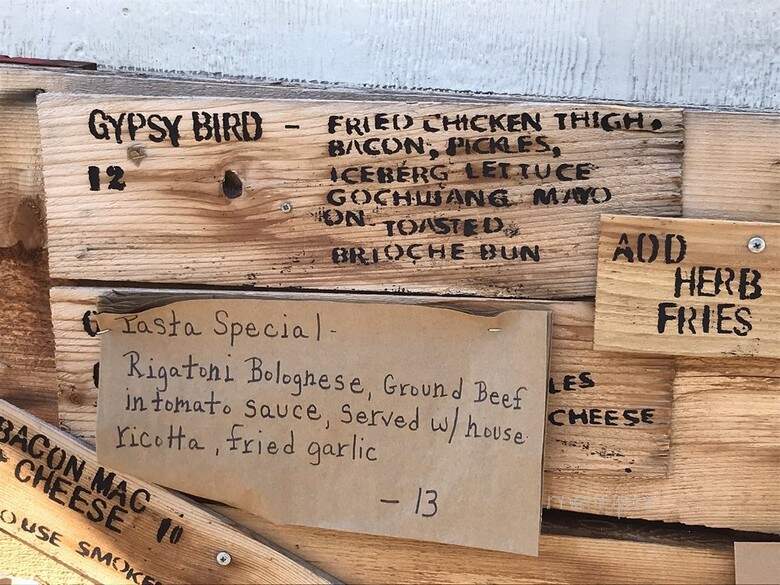 GYPSY BIRD - FRIED CHICKEN THIGH,
BACON, PICKLES,
12
ICEBERG LETTUCE
GOCHUJANG MAYO
ON TOASTED
BRIOCHE BUN
ADD
HERB
FRIES
Pasta Special-
Rigatoni Bolognese, Ground Beef
in tomato sauce, served w/ house
ricotta, fried garlic
- 13
LES
CHEESE
BACON MAC
+ CHEESE 11
OUSE SMOKE